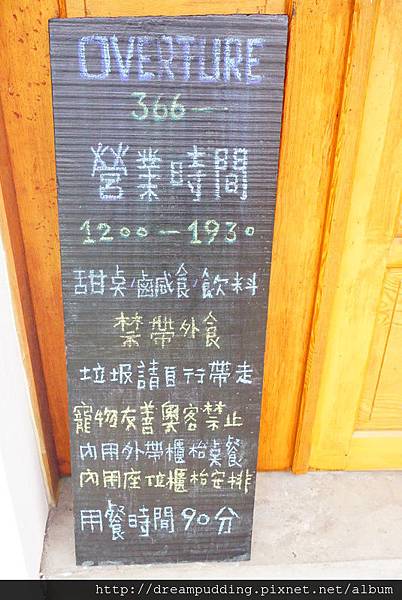 OVERTURE
366—
營業時間
1200-1930
甜桌/鹹食/飲料
禁帶外食
垃圾請自行帶走
寵物友善奧客禁止
內用外帶櫃枱桌餐
內用座位櫃枱安排
用餐時間90分
http://dreampudding.pixnet.net/album